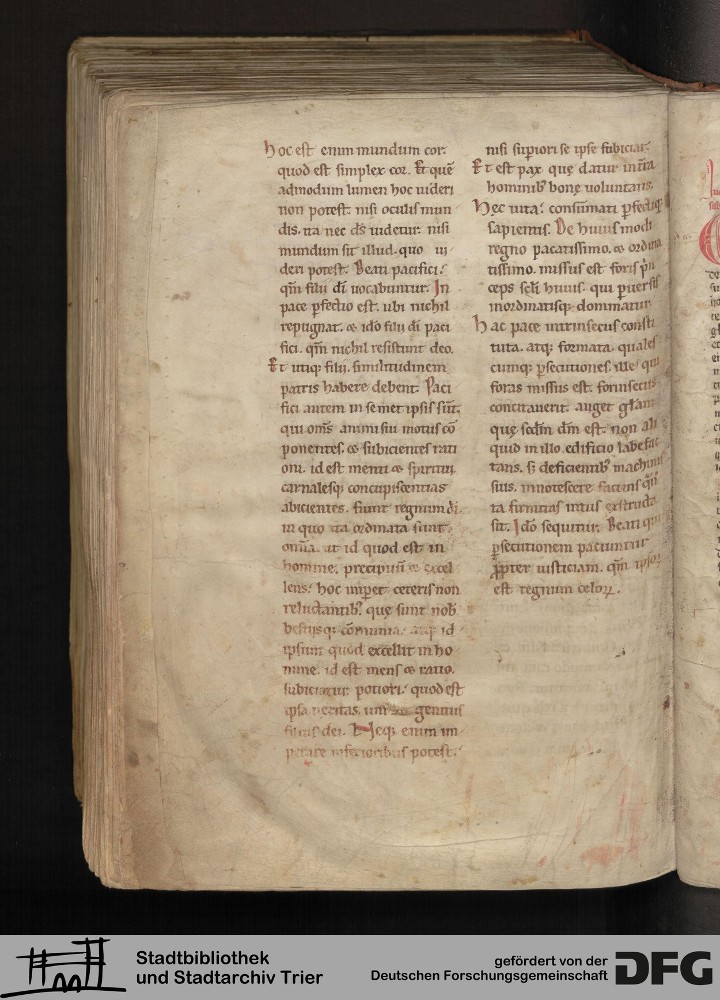 hoc est enim mundum cor.
quod est simplex cor. Et quē
admodum lumen hoc uideri
non potest. nisi oculis mun
dis. ita nec dś uidetur. nisi
mundum sit illud. quo ui
deri potest. Beati pacifici.
qm̄ filii di uocabuntur. In
pace ꝑfectio est. ubi nichil
repugnat. & ido filii di paci
fici. qm̄ nichil resistunt deo.
Et utiq; filii. similitudinem
patris habere debent. Paci
fici autem in semet ipsis sūt.
qui oms̄ animi sui motus cō
ponentes. & subicientes rati
oni. id est menti & spiritui.
carnalesq; concupiscentias
abicientes. fiunt regnum di.
in quo ita ordinata sunt
omia. ut id quod est in
homine. precipuū & excel
lens. hoc imperet ceteris non
reluctantib; que sunt nob
bestiisq; cōmunia. atq; id
ipsum quod excellit in ho
mine. id est mens & ratio.
subiciatur potiori. quod est
ipsa ueritas. genitus
filius dei. Neq; enim im
perare inferioribus potest.
nisi supiori se ipse subiciat.
Et est pax que datur in tra
hominib; bone uoluntatis.
Hec uita. consūmati ꝑfectiq;
sapientis. De huius modi
regno pacatissimo. & ordina
tissimo. missus est foris prin
ceps scli huius. qui ꝑuersis
inordinatisq; dominatur.
Hac pace intrinsecus consti
tuta. atq; formata. quales
cumq; ꝑsecutiones. ille qui
foras missus est. forinsecus
concitauerit. auget glam
que scdm dm est. non ali
quid in illo edificio labefac
tans. s; deficientib; machinis
suis. innotescere faciens
ta firmitas intus exstructa
sit. Ido sequitur. Beati qui
ꝑsecutionem paciuntur
ꝓpter iusticiam. qm̄ ipsoꝝ
est regnum celoꝝ.
Stadtbibliothek
und Stadtarchiv Trier
gefördert von der
Deutschen Forschungsgemeinschaft
DFG